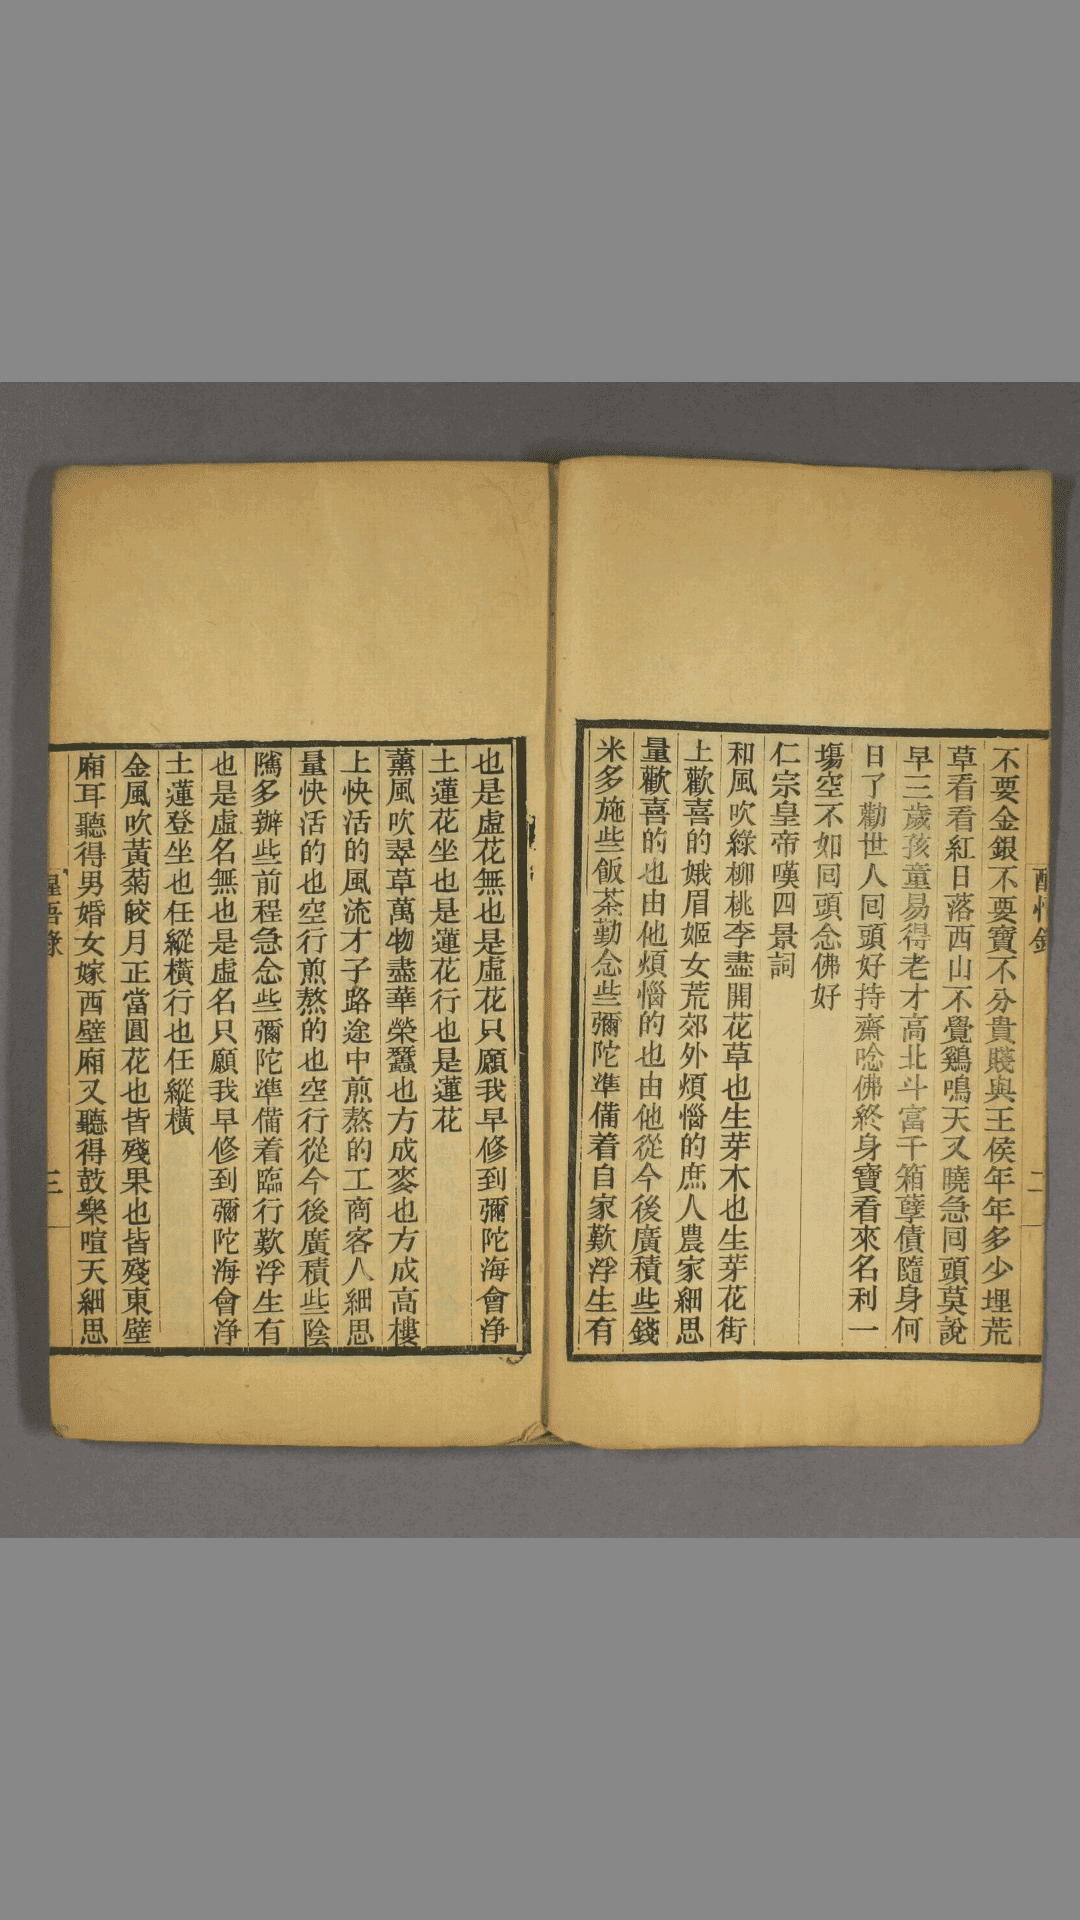 不要金銀不要寶不分貴賤與王侯年年多少埋荒
草看看紅日落西山不覺鷄鳴天又曉急回頭莫說
早三歲孩童易得老才高北斗富千箱孽債隨身何
日了勸世人回頭好持齋唸佛終身寶看來名利一
塲空不如回頭念佛好
仁宗皇帝嘆四景詞
和風吹綠柳桃李盡開花草也生芽木也生芽花街
上歡喜的娥眉姬女荒郊外煩惱的庶人農家細思
量歡喜的也由他煩惱的也由他從今後廣積些錢
米多施些飯茶勤念些彌陀準備着自家歎浮生有
二
也是虛花無也是虛花只願我早修到彌陀海會净
土蓮花坐也是蓮花行也是蓮花
薰風吹翠草萬物盡華榮蠶也方成麥也方成高樓
上快活的風流才子路途中煎熬的工商客人細思
量快活的也空行煎熬的也空行從今後廣積些陰
隲多辦些前程急念些彌陀準備着臨行歎浮生有
也是虛名無也是虛名只願我早修到彌陀海會净
土蓮登坐也任縱橫行也任縱橫
金風吹黃菊皎月正當圓花也皆殘果也皆殘東壁
廂耳聽得男婚女嫁西壁廂又聽得鼓樂喧天細思
三